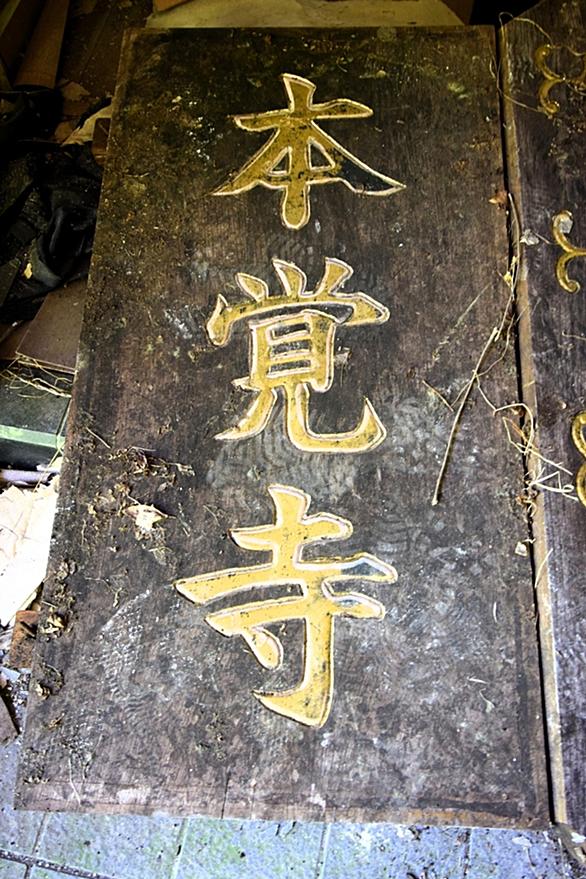 本覚寺